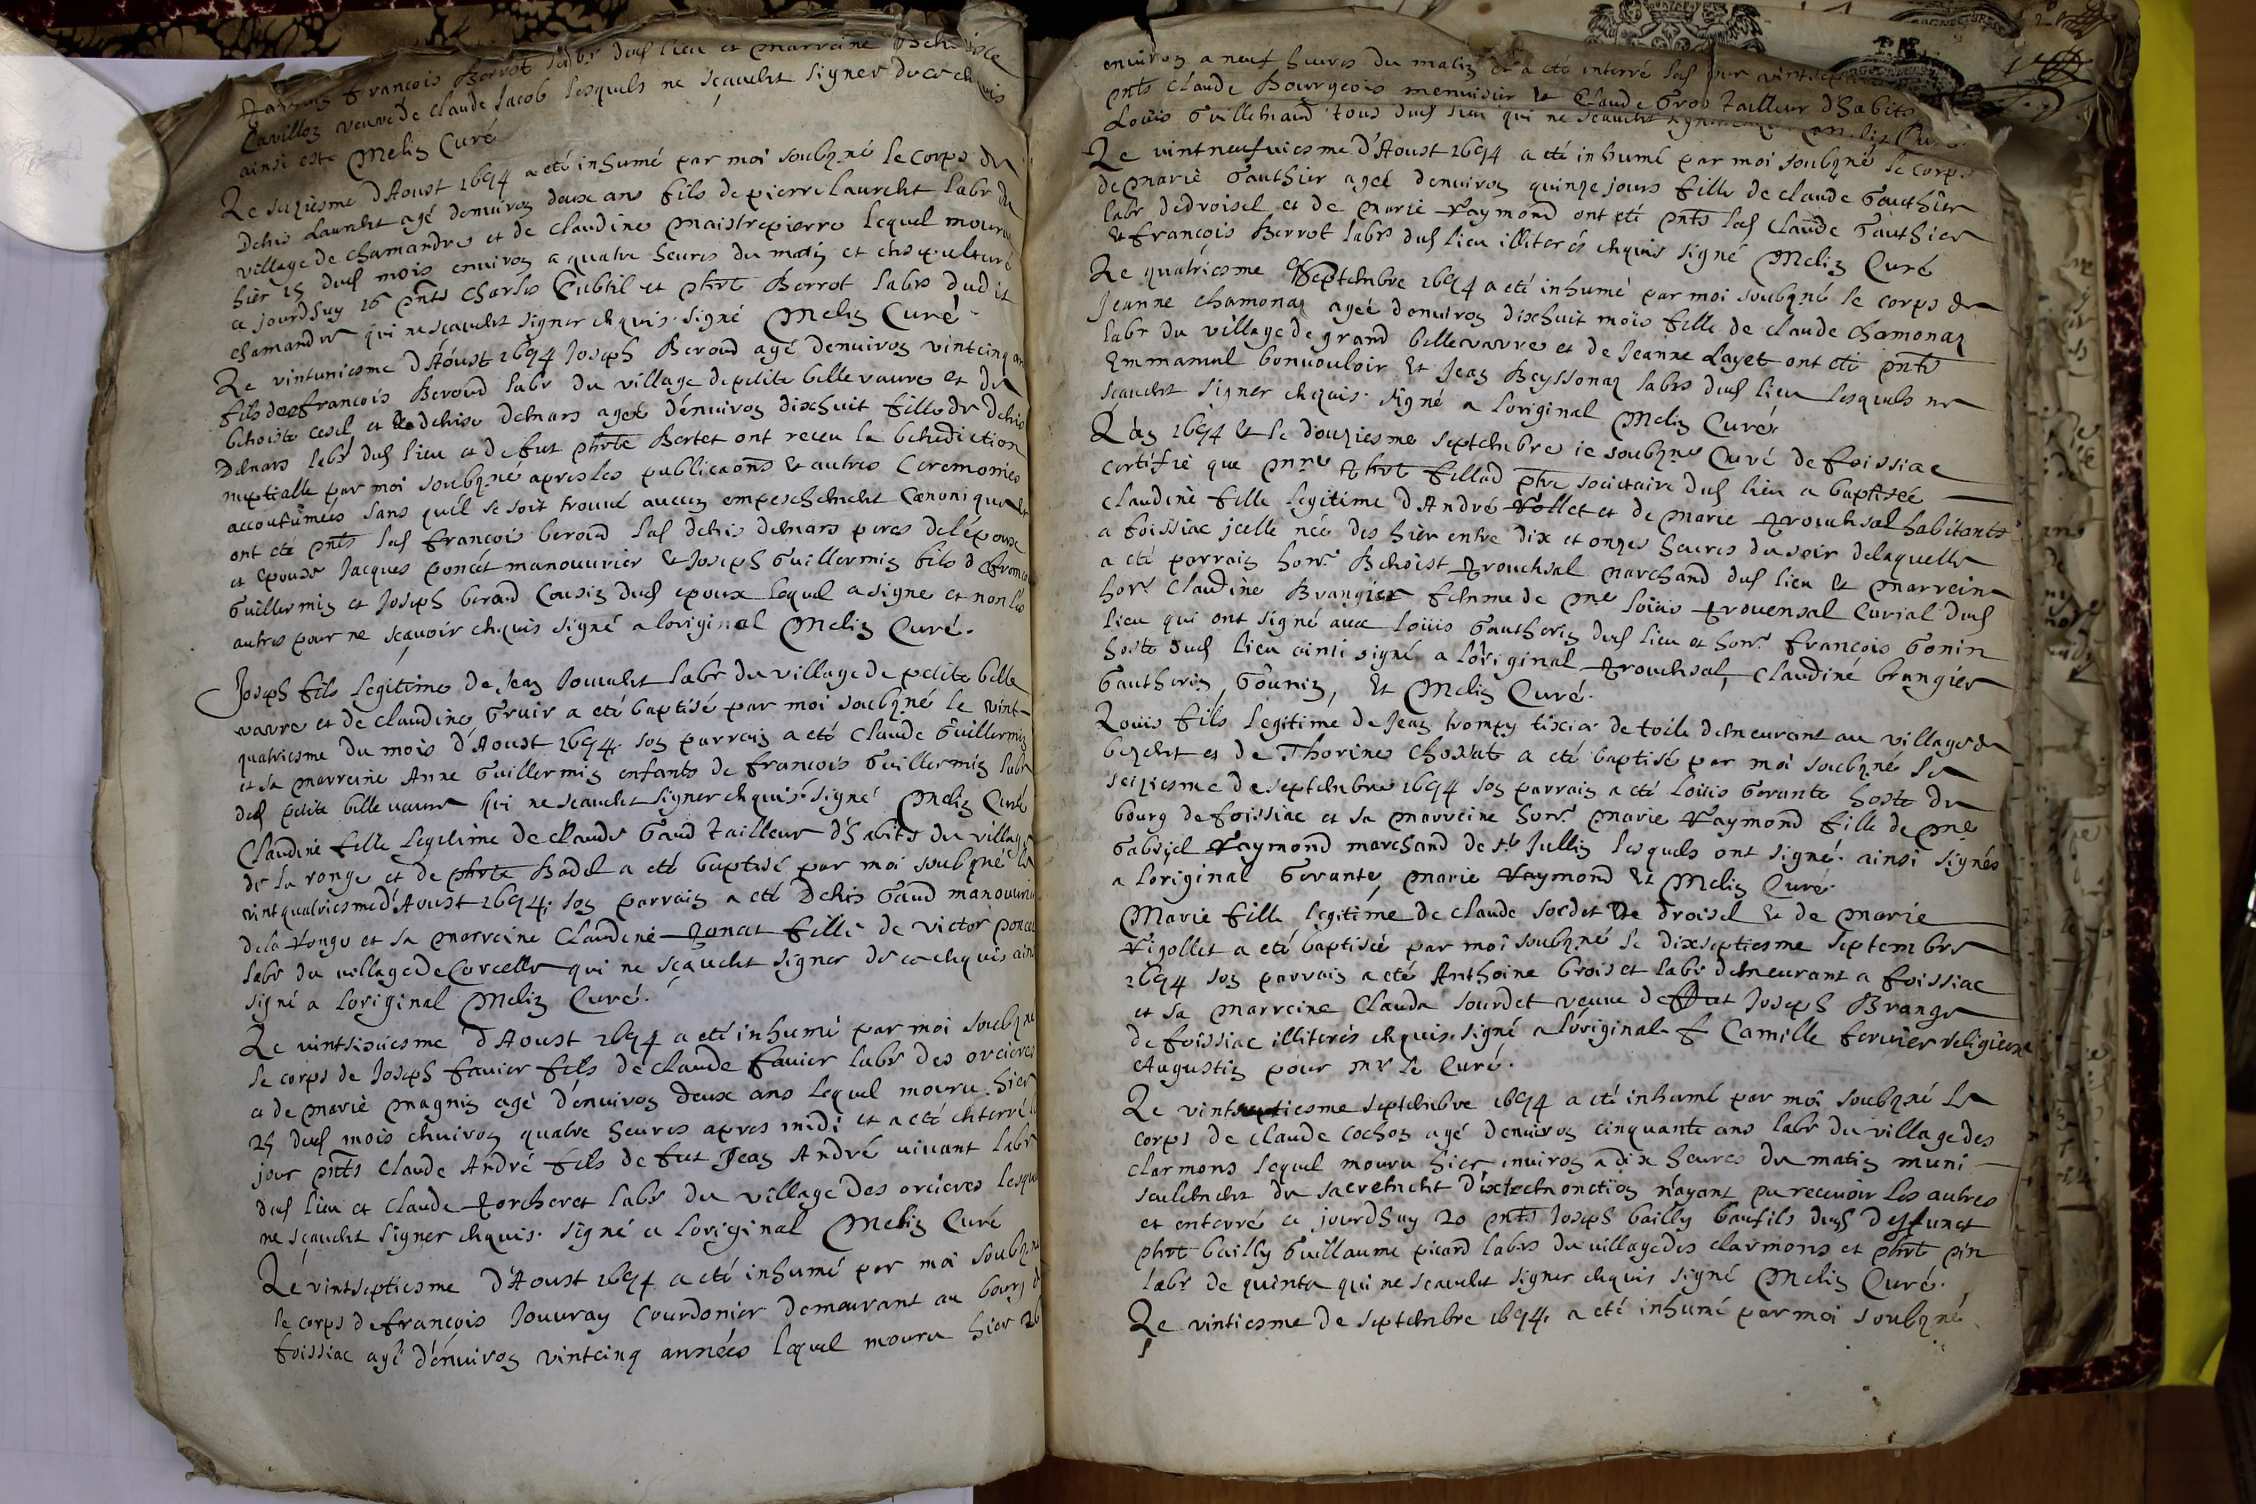 parrain françois Berrot labr dud lieu et marreine
Cavilloz veuve de Claude Jacob lesquels ne sçauent signer de ce enquis
ainsi est Meliz Curé
Le seziesme d'Aoust 1694 a eté inhumé par moi soubzné le corps de
Denis Laurent agé denuiroz deux ans fils de pierre Laurent labr du
village de Chamandre et de Claudine Maistrepierre lequel mouru
hier 15 dud mois enuiroz a quatre heures du matiz et ensepulturé
ce jourdhuy 16 pnts Charles Subtil et phrt Berrot labrs dudit
Chamandre qui ne sçauent signer enquis. signé Meliz Curé
Le vintuniesme d'Aoust 1694 Joseph Beroud agé denuiroz vintcinq ans
fils de françois Beroud labr du village de petite belleuaure et de
benoiste Cesel et Denise Denars agee d'enuiroz dixhuit fille de denis
Denars labr dud lieu et de fut phrte Bertet ont receu la benediction
nuptialle par moi soubzné apres les publicaons et autres Ceremonies
accoutumées sans quél se soit trouué aucuz empeschement Canonique
ont eté pnts led françois beroud led denis denars peres de l'épouse
et epoux Jacques poncét manouurier et Joseph Guillermiz fils de franço
Guillermiz et Joseph beroud Cousiz dud epoux lequel a signe et non les
autres pour ne sçauoir enquis signé a loriginal Meliz Curé.
Joseph fils legitime de Jeaz Jouuent labr du village de petite belle
vavre et de claudine Gruir a eté baptisé par moi soubzné le vint-
quatriesme du mois d'Aoust 1694. soz parraiz a eté Claude Guillermiz
et sa marreine Anne Guillermiz enfants de françois Guillermiz labr
dud petite belleuaure qui ne sçauent signer enquis signé Meliz Curé
Claudine fille legitime de Claude Gaud tailleur d'habits du village
de la ronge et de phrte Badel a eté baptisé par moi soubzné le
vintquatriesme d'Aoust 1694. soz parraiz a eté Denis Gaud manouurier
de la Ronge et sa marreine Claudine poncet fille de victor poncet
labr du village de Corcelle qui ne sçauent signer de ce enquis ainsi
signé a loriginal Meliz Curé.
Le vintsixiesme d'Aoust 1694 a eté inhumé par moi soubzné
le corps de Joseph fauier fils de Claude fauier labr des orcieres
et de marie magniz agé d'enuiroz deux ans lequel mouru hier
25 dud mois enuiroz quatre heures apres midi et a eté enterré le
jour pnts Claude André fils de fut Jeaz André uiuant labr
dud lieu et Claude porcheret labr du village des orcieres lesquels
ne sçauent signer enquis. signé a loriginal Meliz Curé
Le vintseptiesme d'Aoust 1694 a eté inhumé par moi soubzné
le corps de françois Jouuray Courdonier demeurant au bourg de
foissiac agé d'énuiroz vintcinq années lequel mouru hier 26
enuiroz a neuf heures du matiz et a eté interré led jour
pnts Claude Bourgeois menuisier et Claude Gros tailleur d'habits
Loüis Guillemaud tous dud lieu qui ne sçauent signer Meliz Curé.
Le vintneufuiesme d'Aoust 1694 a eté inhumé par moi soubzné le corps
de marie Gauthier agee denuiroz quinze jours fille de claude Gauthier
labr dedroisel et de marie Raymond ont eté pnts led Claude Gauthier
et françois Berrot labrs dud lieu illiterés enquis signé Meliz Curé
Le quatriesme Septenbre 1694 a eté inhumé par moi soubzné le corps de
Jeanne Chamonaz agée denuiroz dixhuit mois fille de Claude Chamonaz
labr du village de grand bellevavre et de Jeanne Layet ont eté pnts
Emmanuel bonuouloir et Jeaz Beyssonaz labrs dud lieu lesquels ne
sçauent signer enquis. signé a loriginal Meliz Curé
L'áz 1694 et le douziesme septenbre ie soubzne Curé de foissiac
certifié que phrt fillod ptre societaire dud lieu a baptisée
Claudine fille legitime d'André Follet et de marie prouensal habitants
a foissiac jcelle née des hier entre dix et onze heures du soir de laquelle
a eté parraiz honr. Benoist prouensal marchand dud lieu et marreine
honr. Claudine Brangier femme de me loüis prouensal Curial dud
lieu qui ont signé auec loüis Gautheriz dud lieu et honr. françois Gonin
hoste dud lieu ainsi signé a loriginal prouensal, Claudine brangier
Gautheriz, Gouniz, et Meliz Curé.
Louis fils legitime de Jeaz trompy tixier de toile demeurant au village de
bezent et de Thorine Choxat a eté baptisé par moi soubzné le
seiziesme de septenbre 1694 soz parraiz a eté loüis Gerante hoste du
bourg de foissiac et sa marreine honr. marie Raymond fille de me
Gabriel Raymond marchand de st Julliz lesquels ont signé. ainsi signés
a loriginal Gerante, marie Raymond et Meliz Curé.
Marie fille legitime de claude sordet de droisel et de marie
Rigollet a eté baptisée par moi soubzné le dixseptiesme septembre
1694 soz parraiz a eté Anthoine broiset labr demeurant a foissiac
et sa marreine Clauda sourdet veuue de fut Joseph Brange
de foissiac illiterés enquis. signé a l'original f Camille feruier religieux
Augustiz pour mr le Curé.
Le vintiesme septenbre 1694 a eté inhumé par moi soubzné le
corps de Claude Cochoz agé denuiroz cinquante ans labr du village des
clarmons lequel mouru hier enuiroz a dix heures du matiz muni
seulement du sacrement d'extremonctioz n'ayant pu receuoir les autres
et enterré ce jourdhuy 20 pnts Joseph bailly baufils dud deffunct
phrt bailly Guillaume picard labrs du village des clarmons et phrt pin
labr de quinta qui ne sçauent signer enquis signé Meliz Curé.
Le vintiesme de septenbre 1694. a eté inhumé par moi soubzné